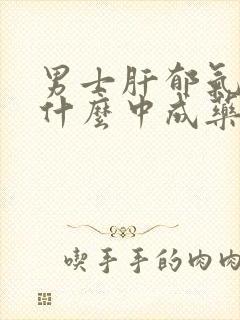 男士肝郁氣
什麼中成藥
喫手手的肉肉